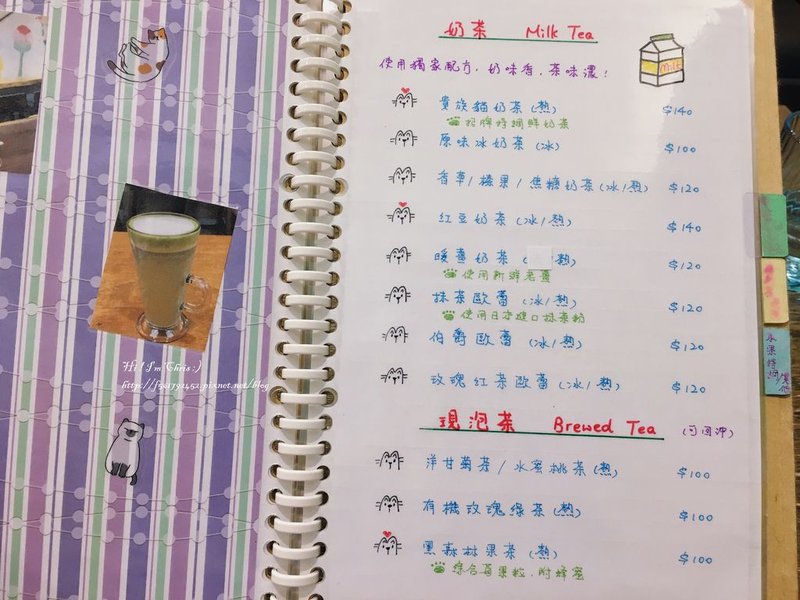 奶茶 Milk Tea
Milk
使用獨家配方，奶味香，茶味濃！
貴族貓奶茶（熱） $140
招牌特調鮮奶茶
原味冰奶茶（冰） $100
香草/榛果/焦糖奶茶（冰/熱） $120
紅豆奶茶（冰/熱） $140
暖薑奶茶（ 熱） $120
使用新鮮老薑
抹茶歐蕾（冰/熱） $120
使用日本進口抹茶粉
伯爵歐蕾（冰/熱） $120
玫瑰紅茶歐蕾（冰/熱） $120
現泡茶 Brewed Tea （可回沖）
洋甘菊茶/水蜜桃茶（熱） $100
有機玫瑰綠茶（熱） $100
黑森林果茶（熱） $100
綜合莓果粒，附蜂蜜
Hi! I'm Chris :)